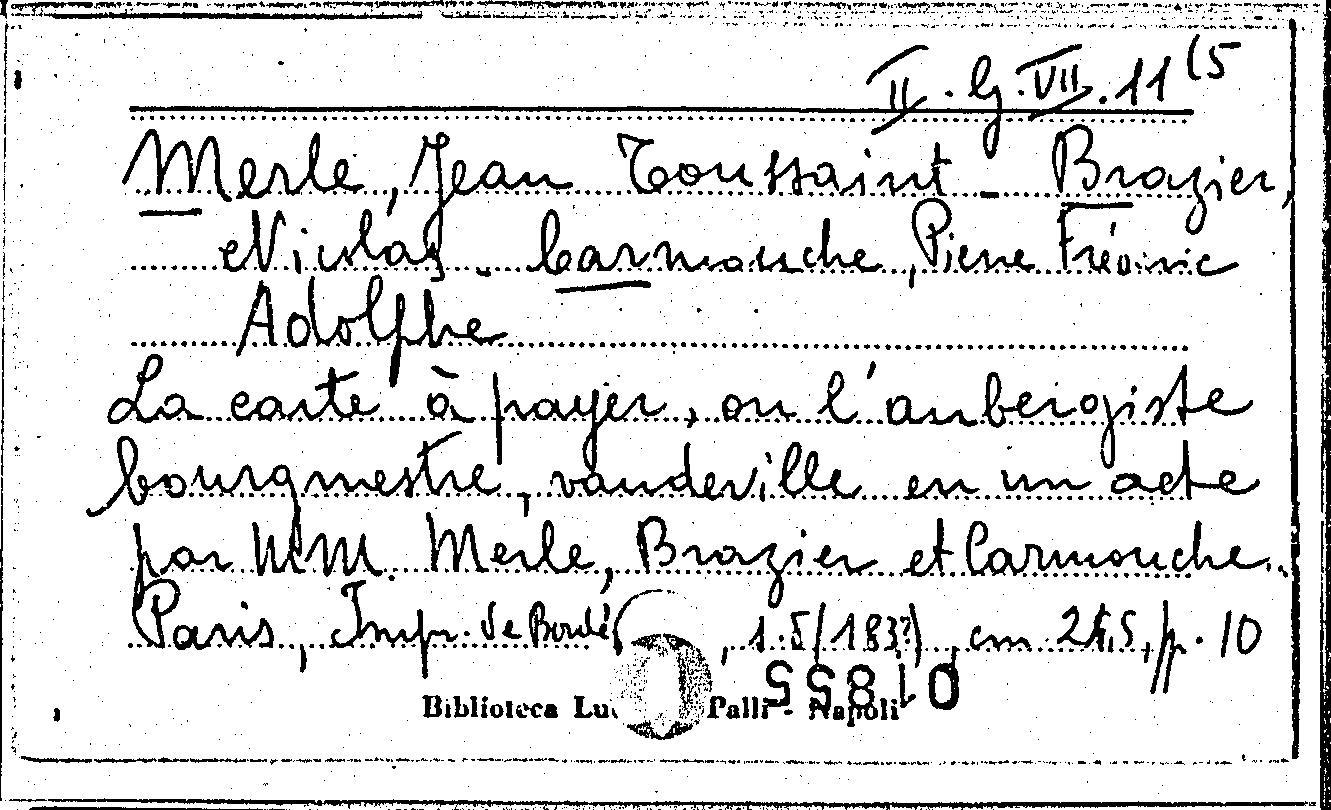 II. G. VII. 11 (5
Merle, Jean Toussaint - Brazier,
Nicolas - Carmouche, Pierre Fréderic
Adolphe
La carte à payer, ou l'aubergiste
bourgmestre, vaudeville en un acte
par MM. Merle, Brazier et Carmouche.
Paris, Impr. de , cm , p. 10
01855
Biblioteca Palli - Napoli